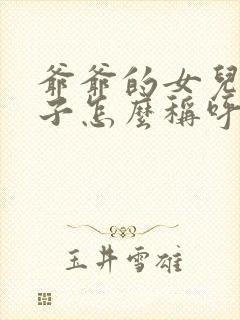 爺爺的女兒
子怎麼稱呼
玉井雪雄